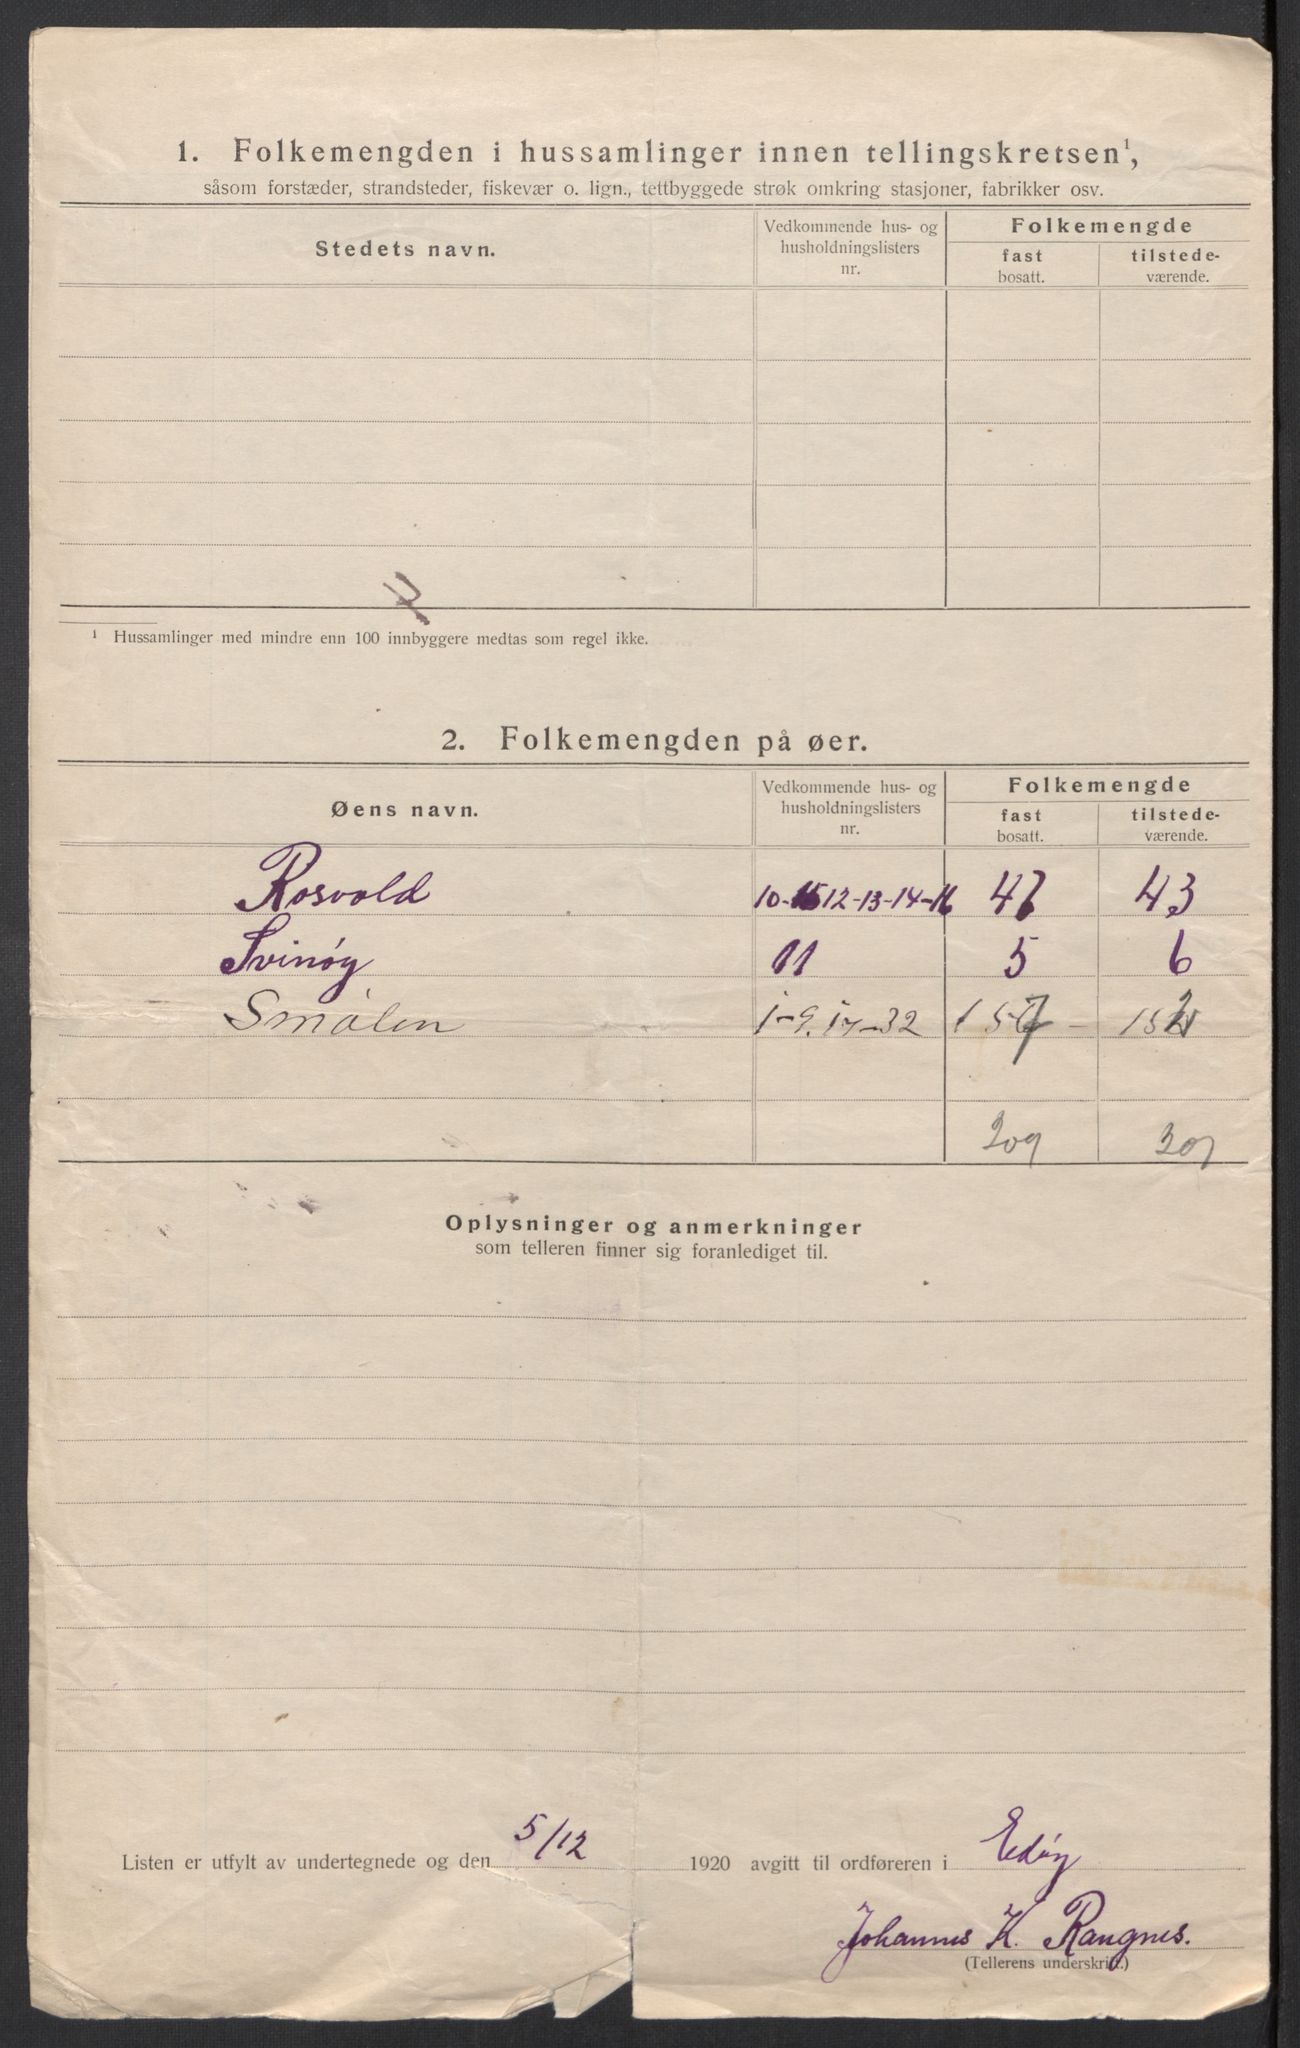 1. Folkemengden i hussamlinger innen tellingskretsen¹,
såsom forstæder, strandsteder, fiskevær o. lign., tettbyggede strøk omkring stasjoner, fabrikker osv.
Stedets navn. Vedkommende hus- og husholdningslisters nr. Folkemengde
fast bosatt. tilstede-værende.
¹ Hussamlinger med mindre enn 100 innbyggere medtas som regel ikke.
2. Folkemengden på øer.
Øens navn. Vedkommende hus- og husholdningslisters nr. Folkemengde
fast bosatt. tilstede-værende.
Rosvold 10-15 12-13-14-16 47 43
Svinøy 11 5 6
Smølen 1-9. 17-32 157 152
209 201
Oplysninger og anmerkninger
som telleren finner sig foranlediget til.
Listen er utfylt av undertegnede og den 5/12 1920 avgitt til ordføreren i Edøy
Johannes K. Rangnes.
(Tellerens underskrift.)